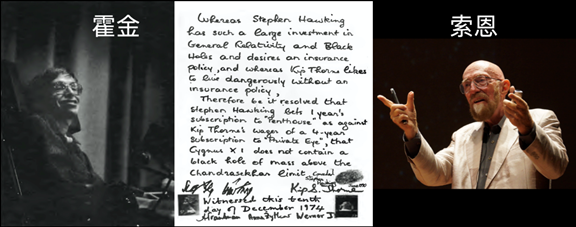 霍金
Whereas Stephen Hawking
has such a large investment in
General Relativity and Black
Holes and desires an insurance
policy, and whereas Kip Thorne likes
to live dangerously without an
insurance policy,
Therefore be it resolved that
Stephen Hawking bets 1 year's
subscription to "Penthouse" as against
Kip Thorne's wages of a 4-year
subscription to "Private Eye", that
Cygnus X 1 does not contain a
black hole of mass above the
Chandrasekhar limit
Kip S. Thorne
Witnessed this tenth
day of December 1974
索恩